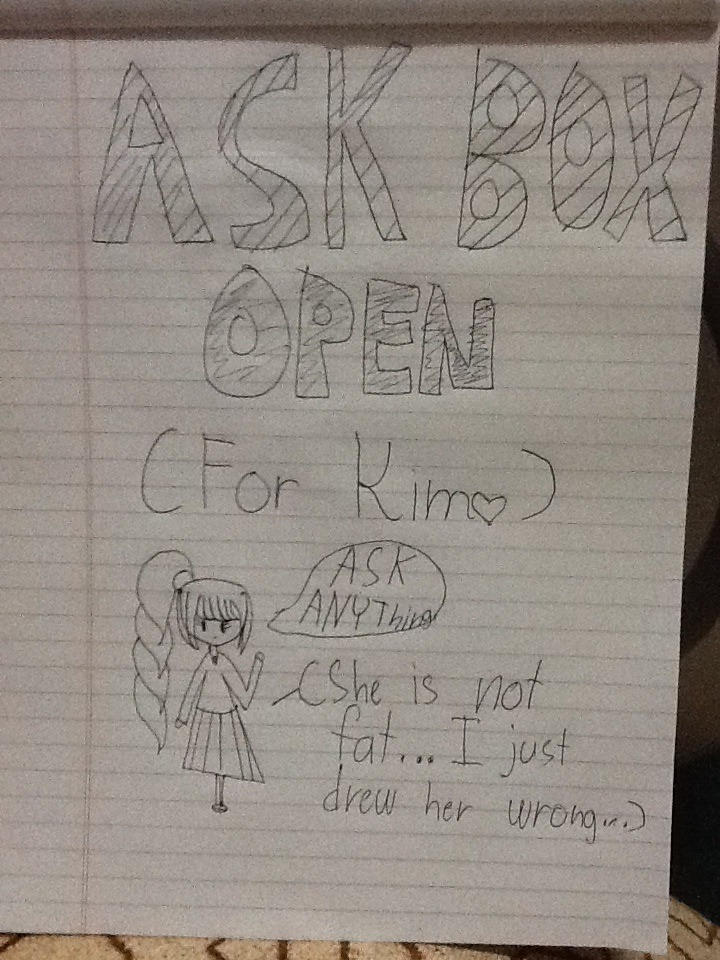 ASK BOX
OPEN
(For Kim♡)
ASK
ANYThing
(She is not
fat... I just
drew her wrong...)